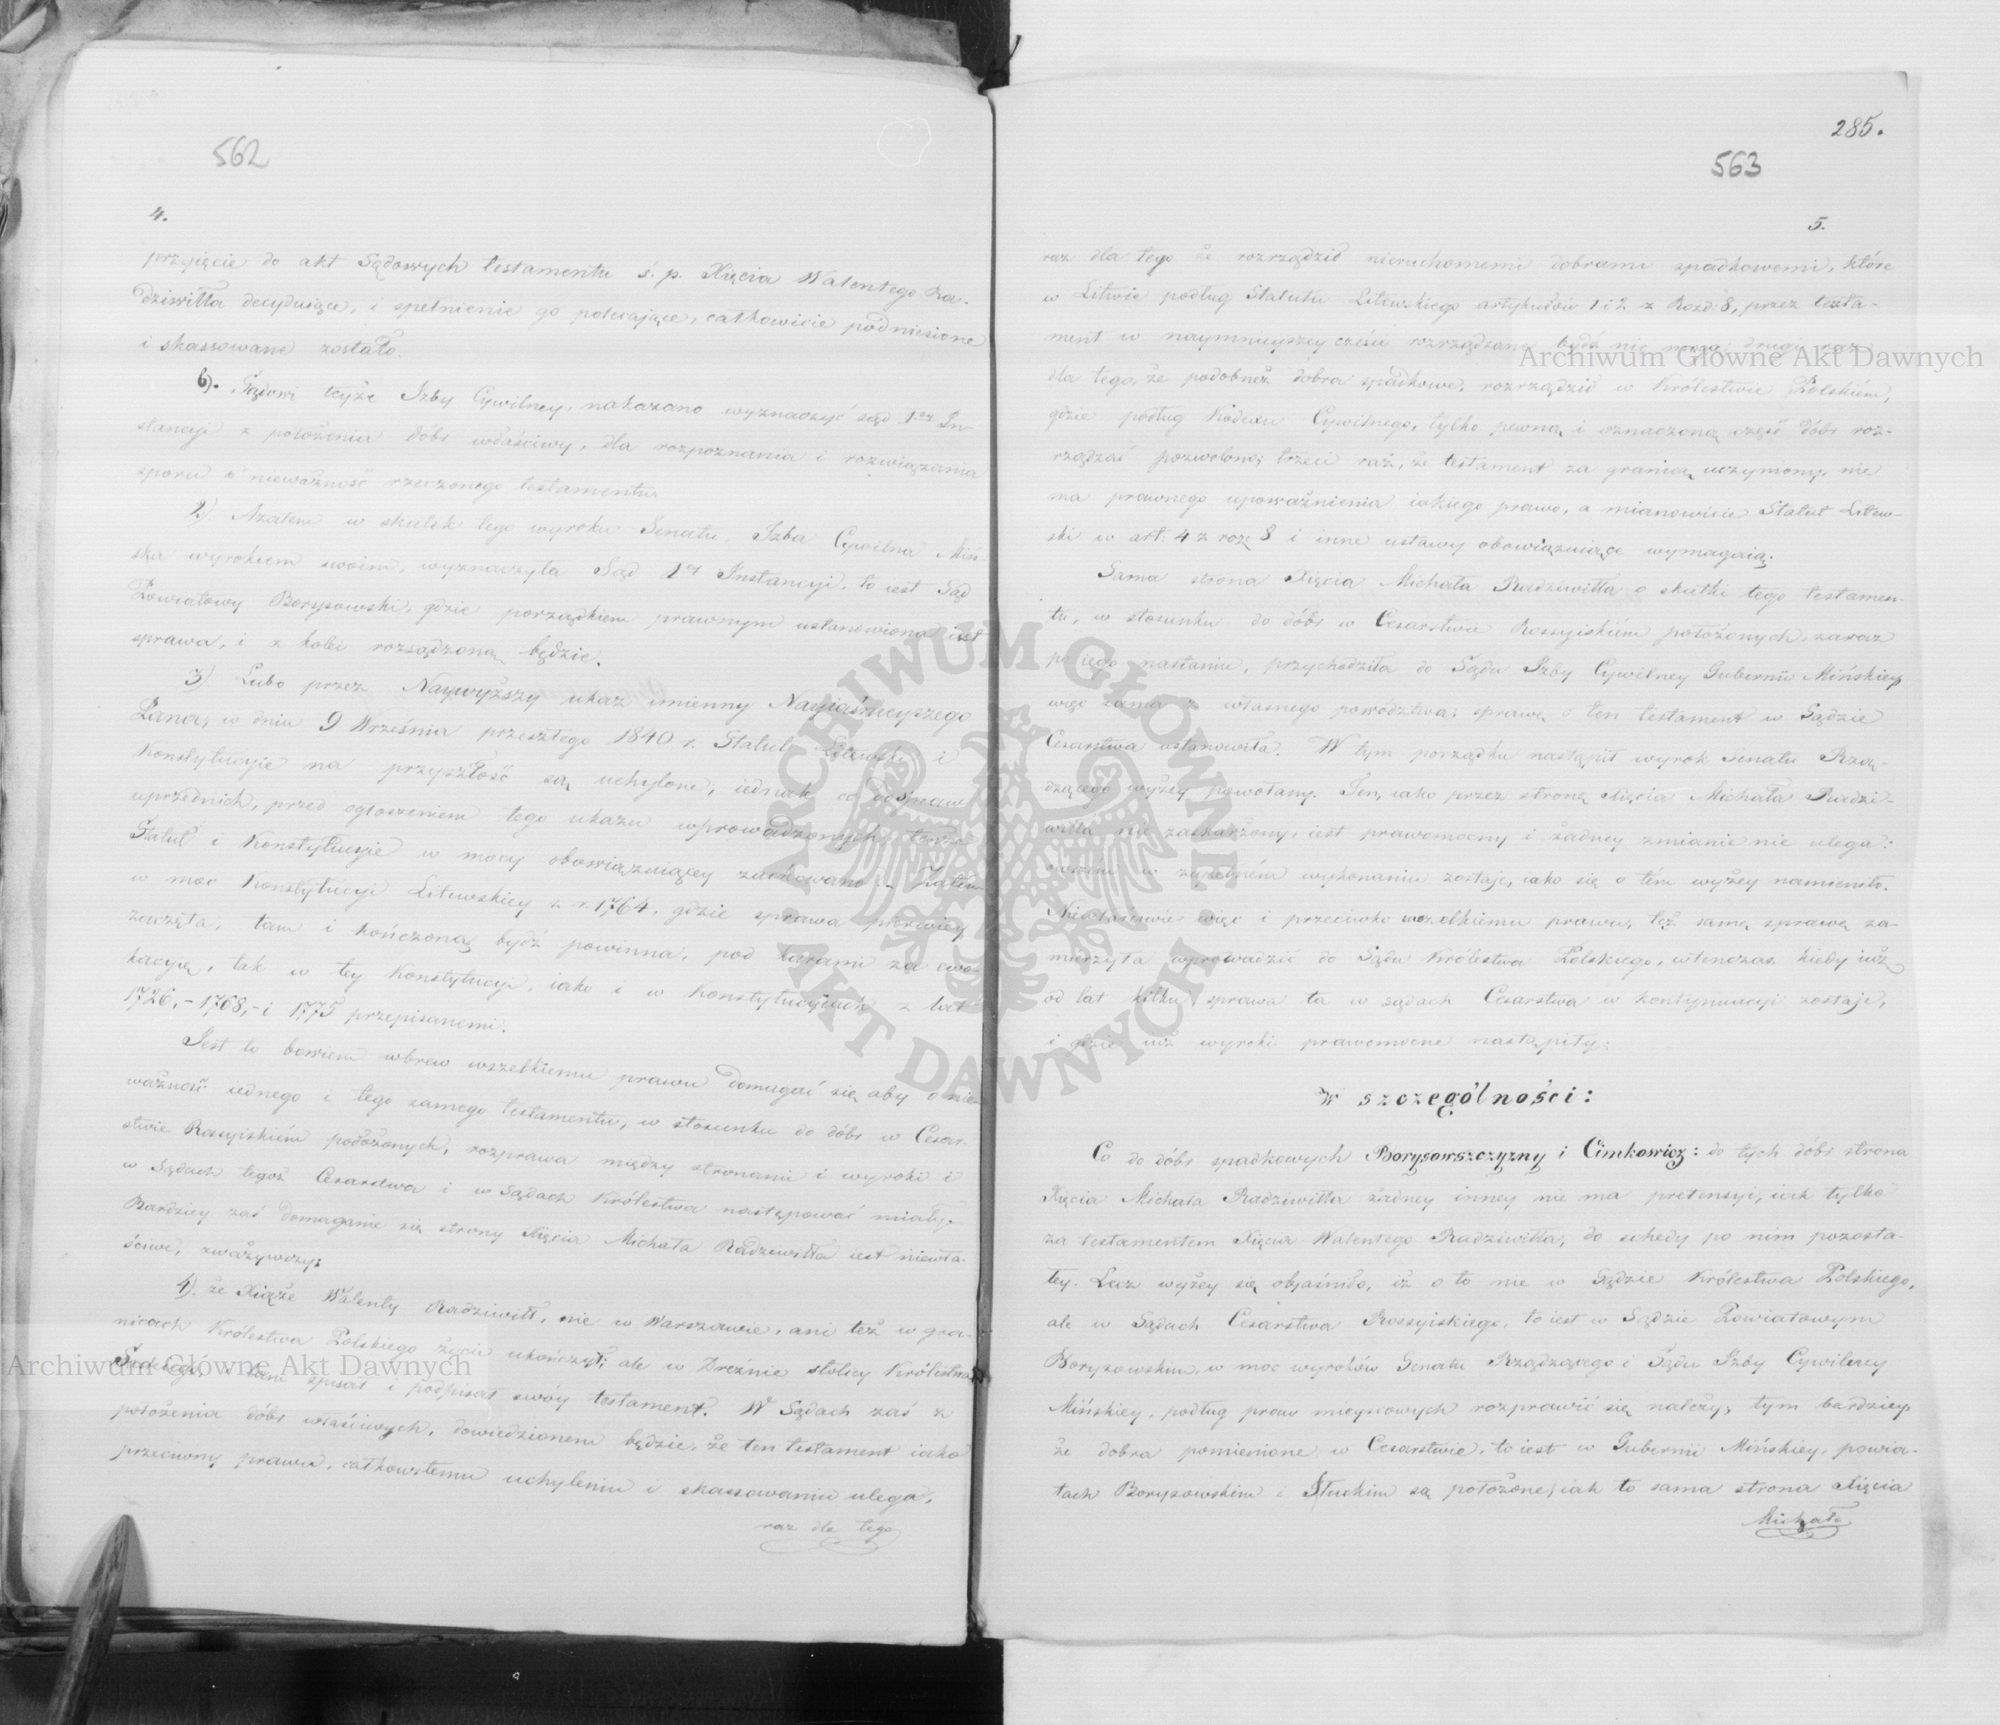 562
4.
przyięcie do akt Sądowych testamentu ś. p. Xięcia Walentego Ra-
dziwiłła decydujące, i spełnienie go polecające, całkowicie podniesione
i skassowane zostało.
b). Sądowi teyże Izby Cywilney, nakazano wyznaczyć sąd 1ey In-
stancyi z położenia dóbr właściwy, dla rozpoznania i rozwiązania
sporu o nieważność rzeczonego testamentu.
2.) A zatem w skutek tego wyroku Senatu, Izba Cywilna Miń-
ska wyrokiem swoim, wyznaczyła Sąd 1ey Instancyi, to iest Sąd
Powiatowy Borysowski, gdzie porządkiem prawnym ustanowiona iest
sprawa, i z kolei rozsądzoną będzie.
3) Lubo przez Naywyższy ukaz imienny Nayiaśnieyszego
Pana, w dniu 9 Września przeszłego 1840 r. Statut Litewski i
Konstytucyie na przyszłość są uchylone, iednak co do spraw
uprzednich, przed ogłoszeniem tego ukazu wprowadzonych, tenże
Statut i Konstytucyie w mocy obowiązuiącey zachowano. Zatem
w moc Konstytucyi Litewskiey z r. 1764, gdzie sprawa pierwiey
zaczęta, tam i kończoną bydź powinna, pod karami za ewo-
kacyią, tak w tey Konstytucyi, iako i w Konstytucyiach z lat
1726,- 1768,- i 1775 przepisanemi.
Jest to bowiem wbrew wszelkiemu prawu domagać się, aby o nie-
ważność iednego i tego samego testamentu, w stosunku do dóbr w Cesar-
stwie Rossyiskiém położonych, rozprawa między stronami i wyroki i
w Sądach tegoż Cesarstwa i w Sądach Królestwa następować miały.
Bardziey zaś domaganie się strony Xięcia Michała Radziwiłła iest niewła-
ściwe, zważywszy:
4). że Xiąże Walenty Radziwiłł, nie w Warszawie, ani też w gra-
nicach Królestwa Polskiego życie ukończył: ale w Dreźnie stolicy Królestwa
Saskiego, i tam spisał i podpisał swóy testament. W Sądach zaś z
położenia dóbr właściwych, dowiedzionem będzie, że ten testament iako
przeciwny prawu, całkowitemu uchyleniu i skassowaniu ulega,
raz dla tego
285.
563
5.
raz dla tego że rozrządził nieruchomemi dobrami spadkowemi, które
w Litwie podług Statutu Litewskiego artykułów 1 i 2 z Rozd: 8, przez testa-
ment w naymnieyszey części rozrządzane bydź nie mogą; drugi raz
dla tego, że podobneż dobra spadkowe, rozrządził w Królestwie Polskiém,
gdzie podług Kodexu Cywilnego, tylko pewną i oznaczoną część dóbr roz-
rządzać pozwolono; trzeci raz, że testament za granicą uczyniony, nie
ma prawnego upoważnienia iakiego prawo, a mianowicie Statut Litew-
ski w art: 4 z roz: 8 i inne ustawy obowiązuiące wymagaią.
Sama strona Xięcia Michała Radziwiłła o skutki tego testamen-
tu, w stosunku do dóbr w Cesarstwie Rossyiskiém położonych, zaraz
po iego nastaniu, przychodziła do Sądu Izby Cywilney Gubernii Mińskiey,
więc sama z własnego powództwa, sprawę o ten testament w Sądzie
Cesarstwa ustanowiła. W tym porządku nastąpił wyrok Senatu Rzą-
dzącego wyżey powołany. Ten, iako przez stronę Xięcia Michała Radzi-
wiłła nie zaskarżony, iest prawomocny i żadney zmianie nie ulega:
owszem w zupełném wykonaniu zostaje, iako się o tém wyżey namieniło.
Niewłaściwie więc i przeciwko wszelkiemu prawu, też samą sprawę za-
mierzyła wprowadzić do Sądu Królestwa Polskiego, wtenczas, kiedy iuż
od lat kilku, sprawa ta w sądach Cesarstwa w kontynuacyi zostaje,
i gdzie iuż wyroki prawomocne nastąpiły.
W szczególności:
Co do dóbr spadkowych Borysowszczyzny i Cimkowicz: do tych dóbr strona
Xięcia Michała Radziwiłła żadney inney nie ma pretensyi, iak tylko
za testamentem Xięcia Walentego Radziwiłła, do schedy po nim pozosta-
łey. Lecz wyżey się objaśniło, iż o to nie w Sądzie Królestwa Polskiego,
ale w Sądach Cesarstwa Rossyiskiego, to iest w Sądzie Powiatowym
Borysowskim, w moc wyroków Senatu Rządzącego i Sądu Izby Cywilney
Mińskiey, podług praw mieyscowych rozprawić się należy; tym bardziey
że dobra pomienione w Cesarstwie, to iest w Gubernii Mińskiey, powia-
tach Borysowskim i Słuckim są położone, iak to sama strona Xięcia
Michała
Archiwum Główne Akt Dawnych
Archiwum Główne Akt Dawnych
ARCHIWUM GŁÓWNE · AKT DAWNYCH ·